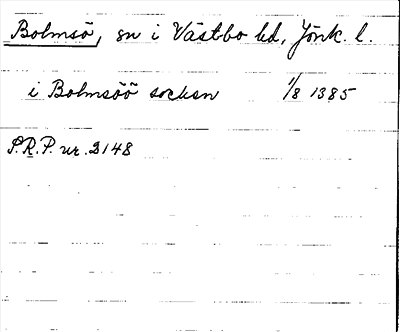 Bolmsö, sn i Västbo hd, Jönk. l.
i Bolmsöö sochsn 1/8 1385
S.R.P. nr. 2148